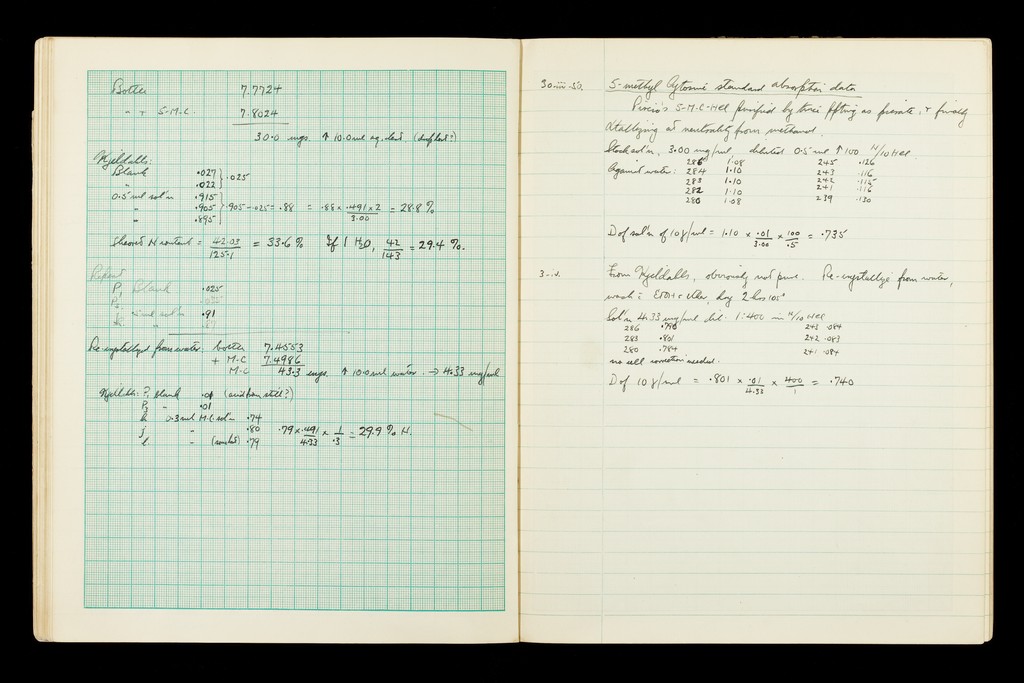 Bottle 7.7724
" + 5-M.C. 7.8024
30.0 mgs. ↑ 10.0 ml aq. dest. (duplest?)
Kjeldahls:
Blank .027
" .022 } .025
0.5 ml sol'n .915
" .905 } .905 - .025 = .88 = .88 × .491 × 2 / 3.00 = 28.8 %
" .895
Theored N content = 42.03 / 125.1 = 33.6 % If 1 H2O, 42 / 143 = 29.4 %.
Repeat
P, blank .025
ml sol'n .91
Re-crystallized from water. bottle 7.4553
+ M.C 7.4986
M.C 43.3 mgs. ↑ 10.0 ml water. → 4.33 mg/ml
Kjeldahls: P, blank .01 (acid from still?)
P2 " .01
k 0.3 ml M.C. sol'n .74
j " .80 .79 × .491 / 4.33 × 1 / .3 = 29.9 % N.
l " .79
30.iii.50. 5-methyl Cytosine standard absorption data
5-M-C-HCl purified by pptting as picrate, & finally
crystallizing at neutrality from methanol.
Stock sol'n, 3.00 mg/ml, diluted 0.5 ml ↑ 100 N/10 HCl
Against water: 286 1.08 245 .126
284 1.10 243 .116
283 1.10 242 .115
282 1.10 241 .116
280 1.08 239 .130
D of sol'n of 10 γ/ml = 1.10 × .01 / 3.00 × 100 / .5 = .735
From Kjeldahls, obviously not pure. Re-crystallize from water,
wash c EtOH & ether, dry 2 hrs 105°
Sol'n 4.33 mg/ml dil. 1:400 in N/10 HCl
286 .790 243 .084
283 .801 242 .083
280 .784 241 .084
no cell correction needed.
D of 10 γ/ml = .801 × .01 / 4.33 × 400 / 1 = .740